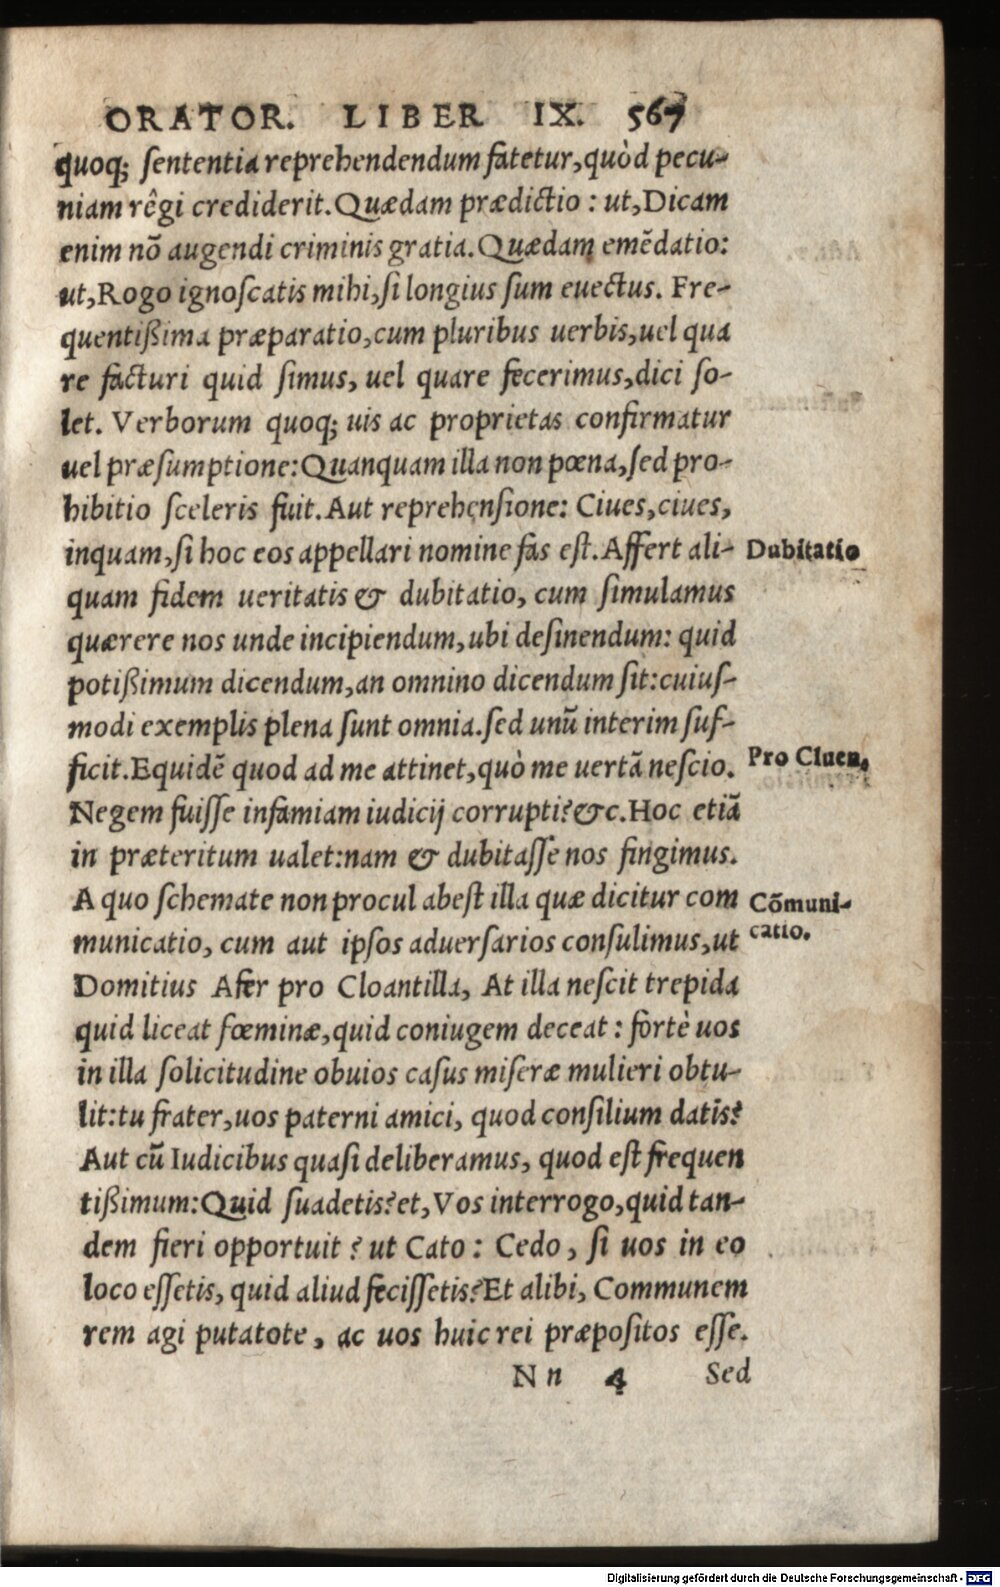 ORATOR. LIBER IX. 567
quoq; sententia reprehendendum fatetur, quòd pecu-
niam rêgi crediderit. Quædam prædictio : ut, Dicam
enim nō augendi criminis gratia. Quædam emēdatio:
ut, Rogo ignoscatis mihi, si longius sum euectus. Fre-
quentißima præparatio, cum pluribus uerbis, uel qua
re facturi quid simus, uel quare fecerimus, dici so-
let. Verborum quoq; uis ac proprietas confirmatur
uel præsumptione: Quanquam illa non pœna, sed pro-
hibitio sceleris fuit. Aut reprehensione: Ciues, ciues,
inquam, si hoc eos appellari nomine fas est. Affert ali-
Dubitatio
quam fidem ueritatis & dubitatio, cum simulamus
quærere nos unde incipiendum, ubi desinendum: quid
potißimum dicendum, an omnino dicendum sit: cuius-
modi exemplis plena sunt omnia. sed unū interim suf-
ficit. Equidē quod ad me attinet, quò me uertā nescio.
Pro Cluen.
Negem fuisse infamiam iudicij corrupti? &c. Hoc etiā
in præteritum ualet: nam & dubitasse nos fingimus.
A quo schemate non procul abest illa quæ dicitur com
Cōmuni-
municatio, cum aut ipsos aduersarios consulimus, ut
catio.
Domitius Afer pro Cloantilla, At illa nescit trepida
quid liceat fœminæ, quid coniugem deceat : fortè uos
in illa solicitudine obuios casus miseræ mulieri obtu-
lit: tu frater, uos paterni amici, quod consilium datis?
Aut cū Iudicibus quasi deliberamus, quod est frequen
tißimum: Quid suadetis? et, Vos interrogo, quid tan-
dem fieri opportuit ? ut Cato : Cedo, si uos in eo
loco essetis, quid aliud fecissetis? Et alibi, Communem
rem agi putatote, ac uos huic rei præpositos esse.
Nn 4 Sed
Digitalisierung gefördert durch die Deutsche Forschungsgemeinschaft - DFG